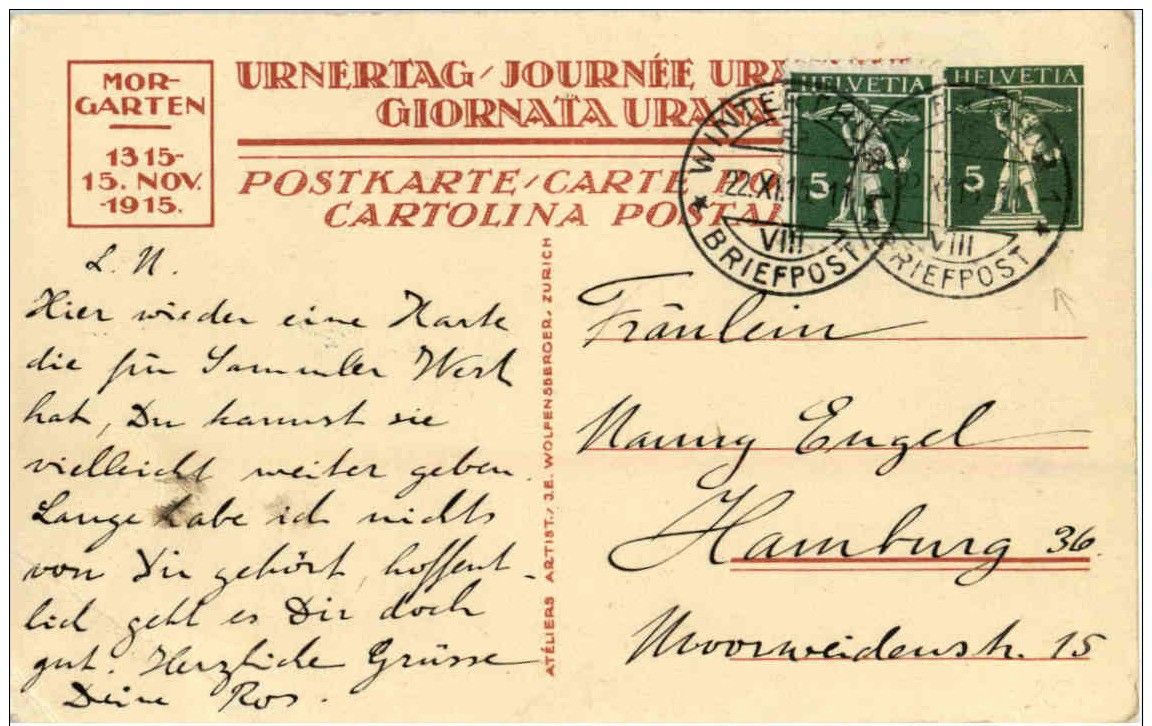 MOR-
GARTEN
1315-
15. NOV.
-1915.
URNERTAG / JOURNÉE
GIORNATA
POSTKARTE / CARTE
CARTOLINA POSTAL
HELVETIA
5
HELVETIA
5
WINTERTHUR
22.XI.15
VIII
BRIEFPOST
VIII
BRIEFPOST
L. N.
Hier wieder eine Karte
die für Sammler Wert
hat, Du kannst sie
vielleicht weiter geben.
Lange habe ich nichts
von Dir gehört, hoffent-
lich geht es Dir doch
gut. Herzliche Grüsse
Deine Ros.
ATELIERS ARTIST. / J.E. WOLFENSBERGER, ZURICH
Fräulein
Nanny Engel
Hamburg 36.
Moorweidenstr. 15